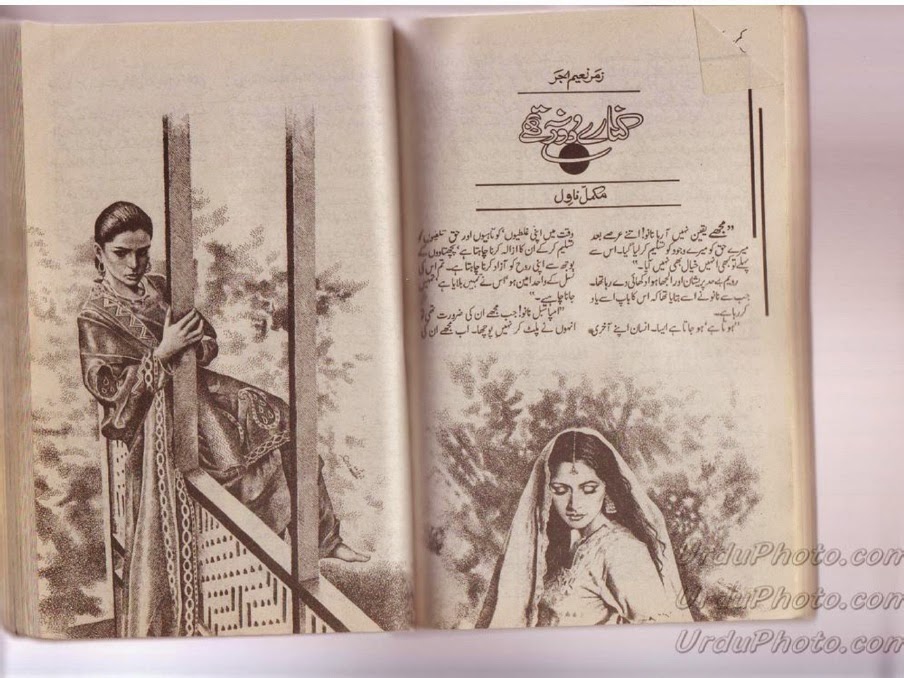 کر
زمر نعیم اجر
کنارے دور نہ تھے
مکمل ناول
”مجھے یقین نہیں آ رہا نانو! اتنے عرصے بعد
میرے حق کو میرے وجود کو تسلیم کر لیا گیا۔ اس سے
پہلے تو کبھی انہیں خیال بھی نہیں آیا۔“
رویم بے حد پریشان اور الجھا ہوا دکھائی دے رہا تھا۔
جب سے نانو نے اسے بتایا تھا کہ اس کا باپ اسے یاد
کر رہا ہے۔
”ہوتا ہے ہو جاتا ہے ایسا۔ انسان اپنے آخری
وقت میں اپنی غلطیوں، کوتاہیوں اور حق تلفیوں کو
تسلیم کر کے ان کا ازالہ کرنا چاہتا ہے۔ پچھتاووں کے
بوجھ سے اپنی روح کو آزاد کرنا چاہتا ہے۔ تم اس کی
نسل کے واحد امین ہو، اس نے تمہیں بلایا ہے، تمہیں
جانا چاہیے۔“
”امپاسبل نانو! جب مجھے ان کی ضرورت تھی تو
انہوں نے پلٹ کر نہیں پوچھا۔ اب مجھے ان کی
UrduPhoto.com
UrduPhoto.com
UrduPhoto.com